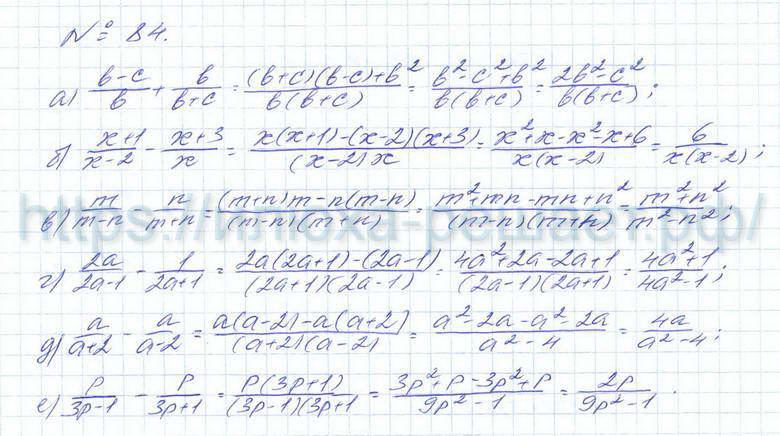 № 84.
а) (в-с)/в + в/(в+с) = ((в+с)(в-с)+в²)/(в(в+с)) = (в²-с²+в²)/(в(в+с)) = (2в²-с²)/(в(в+с));
б) (x+1)/(x-2) - (x+3)/x = (x(x+1)-(x-2)(x+3))/((x-2)x) = (x²+x-x²-x+6)/(x(x-2)) = 6/(x(x-2));
в) m/(m-n) - n/(m+n) = ((m+n)m-n(m-n))/((m-n)(m+n)) = (m²+mn-mn+n²)/((m-n)(m+n)) = (m²+n²)/(m²-n²);
г) 2a/(2a-1) - 1/(2a+1) = (2a(2a+1)-(2a-1))/((2a+1)(2a-1)) = (4a²+2a-2a+1)/((2a-1)(2a+1)) = (4a²+1)/(4a²-1);
д) a/(a+2) - a/(a-2) = (a(a-2)-a(a+2))/((a+2)(a-2)) = (a²-2a-a²-2a)/(a²-4) = 4a/(a²-4);
е) p/(3p-1) - p/(3p+1) = (p(3p+1))/((3p-1)(3p+1) = (3p²+p-3p²+p)/(9p²-1) = 2p/(9p²-1).